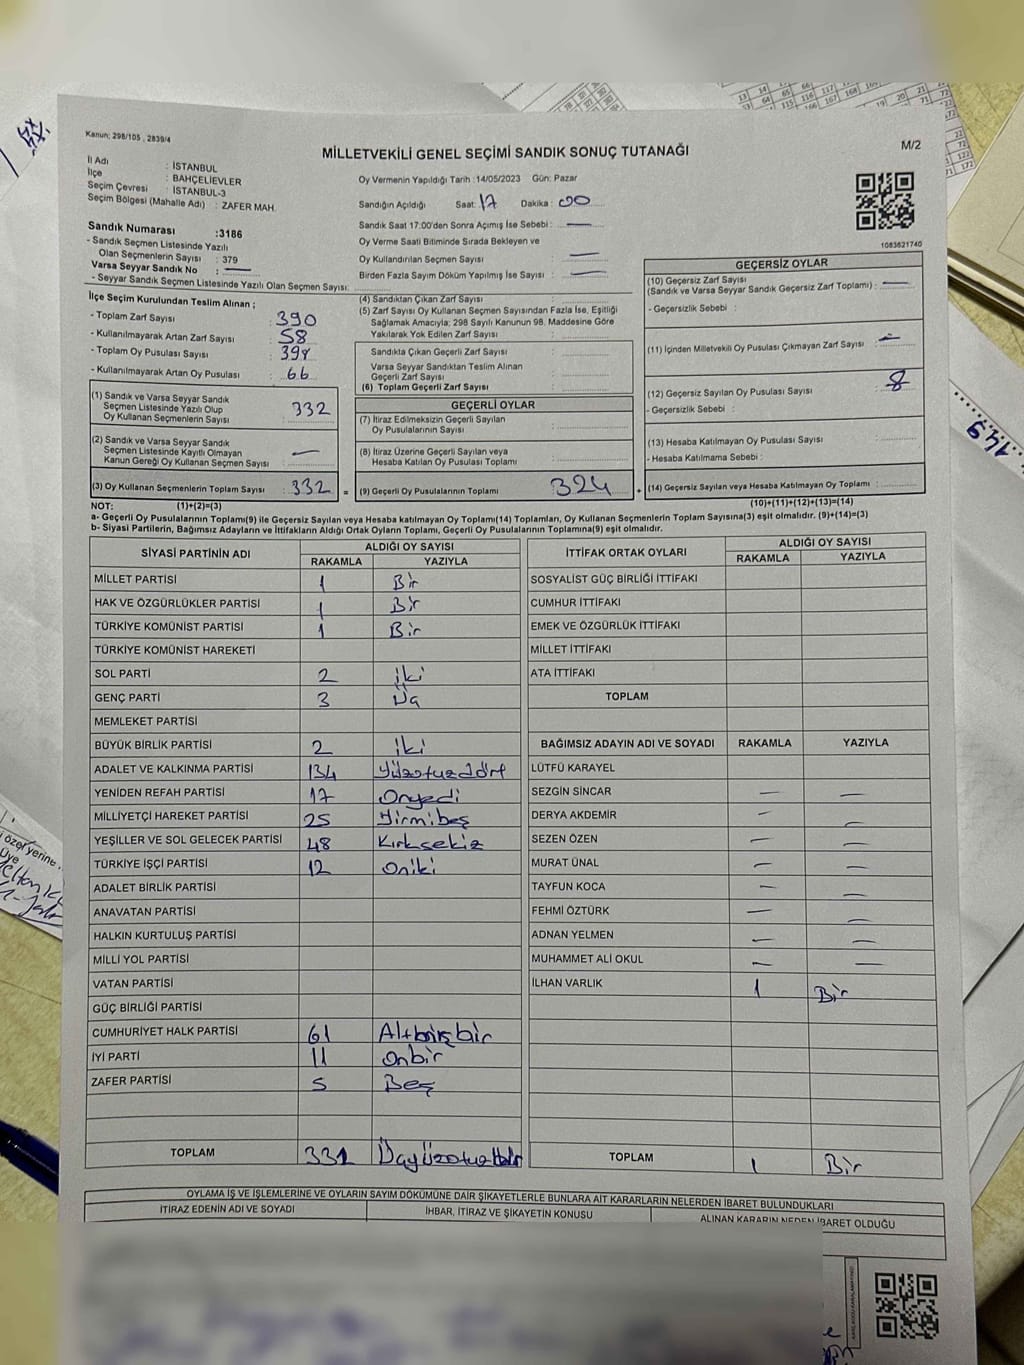 Kanun; 298/105 , 2839/4
MİLLETVEKİLİ GENEL SEÇİMİ SANDIK SONUÇ TUTANAĞI
M/2
İl Adı : İSTANBUL
İlçe : BAHÇELİEVLER
Seçim Çevresi : İSTANBUL-3
Seçim Bölgesi (Mahalle Adı) : ZAFER MAH.
Sandık Numarası :3186
- Sandık Seçmen Listesinde Yazılı
Olan Seçmenlerin Sayısı : 379
Varsa Seyyar Sandık No : —
- Seyyar Sandık Seçmen Listesinde Yazılı Olan Seçmen Sayısı:
Oy Vermenin Yapıldığı Tarih :14/05/2023 Gün: Pazar
Sandığın Açıldığı Saat: 17 Dakika : 00
Sandık Saat 17:00'den Sonra Açımış İse Sebebi : —
Oy Verme Saati Bitiminde Sırada Bekleyen ve
Oy Kullandırılan Seçmen Sayısı : —
Birden Fazla Sayım Döküm Yapılmış İse Sayısı : —
1083621740
İlçe Seçim Kurulundan Teslim Alınan ;
- Toplam Zarf Sayısı : 390
- Kullanılmayarak Artan Zarf Sayısı : 58
- Toplam Oy Pusulası Sayısı : 398
- Kullanılmayarak Artan Oy Pusulası : 66
(1) Sandık ve Varsa Seyyar Sandık
Seçmen Listesinde Yazılı Olup
Oy Kullanan Seçmenlerin Sayısı : 332
(2) Sandık ve Varsa Seyyar Sandık
Seçmen Listesinde Kayıtlı Olmayan
Kanun Gereği Oy Kullanan Seçmen Sayısı : —
(3) Oy Kullanan Seçmenlerin Toplam Sayısı : 332 =
(4) Sandıktan Çıkan Zarf Sayısı :
(5) Zarf Sayısı Oy Kullanan Seçmen Sayısından Fazla İse, Eşitliği
Sağlamak Amacıyla; 298 Sayılı Kanunun 98. Maddesine Göre
Yakılarak Yok Edilen Zarf Sayısı :
Sandıkta Çıkan Geçerli Zarf Sayısı :
Varsa Seyyar Sandıktan Teslim Alınan
Geçerli Zarf Sayısı :
(6) Toplam Geçerli Zarf Sayısı :
GEÇERLİ OYLAR
(7) İtiraz Edilmeksizin Geçerli Sayılan
Oy Pusulalarının Sayısı :
(8) İtiraz Üzerine Geçerli Sayılan veya
Hesaba Katılan Oy Pusulası Toplamı :
(9) Geçerli Oy Pusulalarının Toplamı : 324 +
GEÇERSİZ OYLAR
(10) Geçersiz Zarf Sayısı
(Sandık ve Varsa Seyyar Sandık Geçersiz Zarf Toplamı) : —
- Geçersizlik Sebebi :
(11) İçinden Milletvekili Oy Pusulası Çıkmayan Zarf Sayısı : —
(12) Geçersiz Sayılan Oy Pusulası Sayısı : 8
- Geçersizlik Sebebi :
(13) Hesaba Katılmayan Oy Pusulası Sayısı :
- Hesaba Katılmama Sebebi :
(14) Geçersiz Sayılan veya Hesaba Katılmayan Oy Toplamı :
NOT: (1)+(2)=(3) (10)+(11)+(12)+(13)=(14)
a- Geçerli Oy Pusulalarının Toplamı(9) ile Geçersiz Sayılan veya Hesaba katılmayan Oy Toplamı(14) Toplamları, Oy Kullanan Seçmenlerin Toplam Sayısına(3) eşit olmalıdır. (9)+(14)=(3)
b- Siyasi Partilerin, Bağımsız Adayların ve İttifakların Aldığı Ortak Oyların Toplamı, Geçerli Oy Pusulalarının Toplamına(9) eşit olmalıdır.
SİYASİ PARTİNİN ADI ALDIĞI OY SAYISI
RAKAMLA YAZIYLA
MİLLET PARTİSİ 1 Bir
HAK VE ÖZGÜRLÜKLER PARTİSİ 1 Bir
TÜRKİYE KOMÜNİST PARTİSİ 1 Bir
TÜRKİYE KOMÜNİST HAREKETİ
SOL PARTİ 2 iki
GENÇ PARTİ 3 Üç
MEMLEKET PARTİSİ
BÜYÜK BİRLİK PARTİSİ 2 iki
ADALET VE KALKINMA PARTİSİ 134 Yüzotuzdört
YENİDEN REFAH PARTİSİ 17 Onyedi
MİLLİYETÇİ HAREKET PARTİSİ 25 Yirmibeş
YEŞİLLER VE SOL GELECEK PARTİSİ 48 Kırksekiz
TÜRKİYE İŞÇİ PARTİSİ 12 Oniki
ADALET BİRLİK PARTİSİ
ANAVATAN PARTİSİ
HALKIN KURTULUŞ PARTİSİ
MİLLİ YOL PARTİSİ
VATAN PARTİSİ
GÜÇ BİRLİĞİ PARTİSİ
CUMHURİYET HALK PARTİSİ 61 Altmışbir
İYİ PARTİ 11 Onbir
ZAFER PARTİSİ 5 Beş
TOPLAM
İTTİFAK ORTAK OYLARI ALDIĞI OY SAYISI
RAKAMLA YAZIYLA
SOSYALİST GÜÇ BİRLİĞİ İTTİFAKI
CUMHUR İTTİFAKI
EMEK VE ÖZGÜRLÜK İTTİFAKI
MİLLET İTTİFAKI
ATA İTTİFAKI
TOPLAM
BAĞIMSIZ ADAYIN ADI VE SOYADI RAKAMLA YAZIYLA
LÜTFÜ KARAYEL
SEZGİN SİNCAR — —
DERYA AKDEMİR — —
SEZEN ÖZEN — —
MURAT ÜNAL — —
TAYFUN KOCA — —
FEHMİ ÖZTÜRK — —
ADNAN YELMEN — —
MUHAMMET ALİ OKUL — —
İLHAN VARLIK 1 Bir
TOPLAM 1 Bir
OYLAMA İŞ VE İŞLEMLERİNE VE OYLARIN SAYIM DÖKÜMÜNE DAİR ŞİKAYETLERLE BUNLARA AİT KARARLARIN NELERDEN İBARET BULUNDUKLARI
İTİRAZ EDENİN ADI VE SOYADI İHBAR, İTİRAZ VE ŞİKAYETİN KONUSU ALINAN KARARIN NEDEN İBARET OLDUĞU